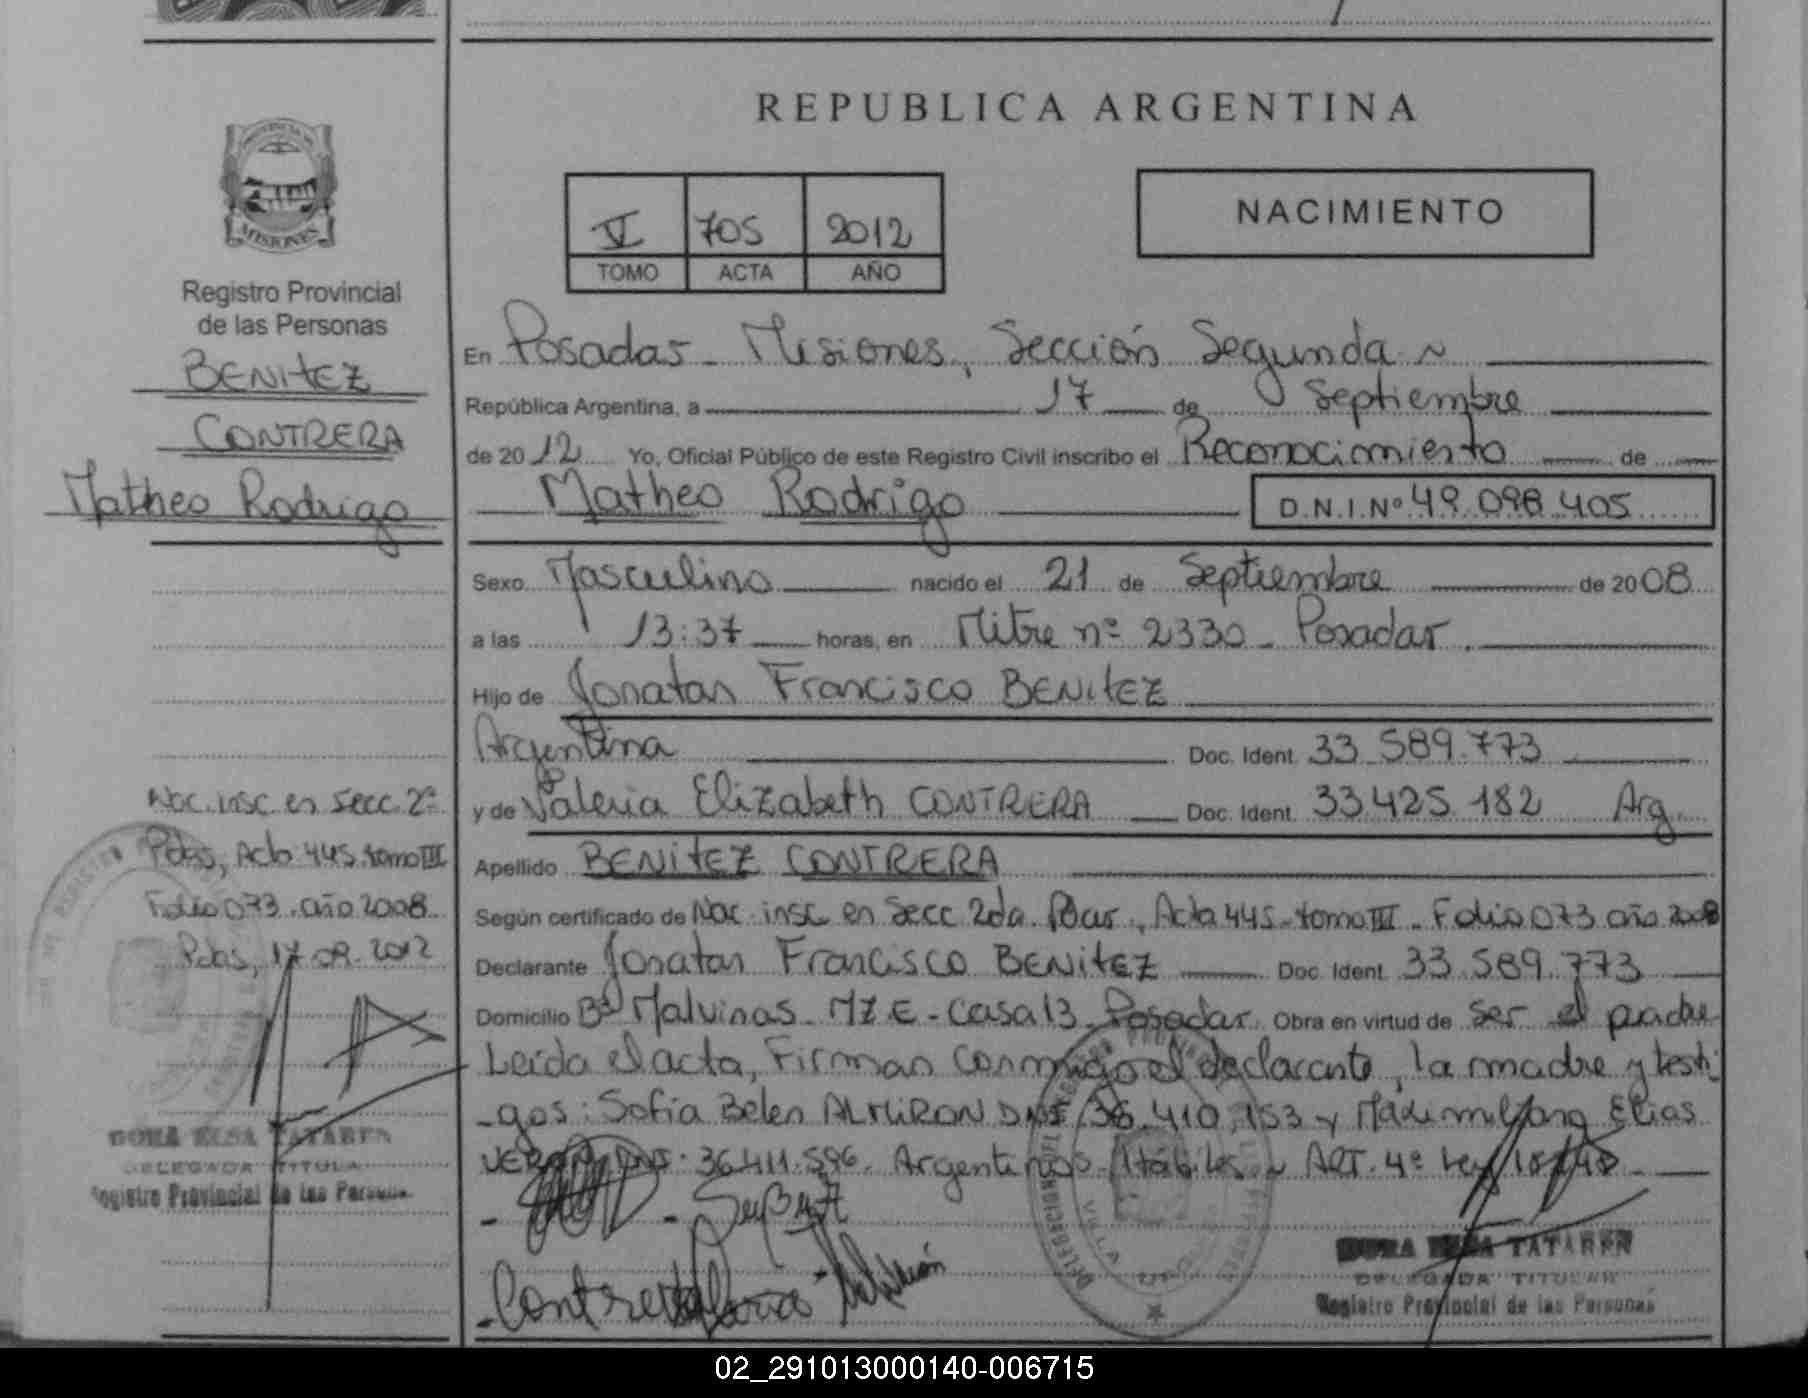 REPUBLICA ARGENTINA
V 705 2012
TOMO ACTA AÑO
NACIMIENTO
MISIONES
Registro Provincial
de las Personas
BENITEZ
CONTRERA
Matheo Rodrigo
Nac. insc en Secc. 2ª
Pdas, Acta 445. tomo III
Folio 073. año 2008
Pdas, 17.09.2012
TATAREN
DELEGADA TITULA
Registro Provincial de las Persona
En Posadas - Misiones, Sección Segunda
República Argentina, a 17 de Septiembre
de 2012 Yo, Oficial Público de este Registro Civil inscribo el Reconocimiento de
Matheo Rodrigo D.N.I.Nº 49.098.405
Sexo Masculino nacido el 21 de Septiembre de 2008
a las 13:37 horas, en Mitre nº 2330 - Posadas.
Hijo de Jonatan Francisco BENITEZ
Argentina Doc. Ident. 33.589.773
y de Valeria Elizabeth CONTRERA Doc. Ident. 33.425.182 Arg.
Apellido BENITEZ CONTRERA
Según certificado de Nac. insc en Secc 2da. Pdas., Acta 445 - tomo III - Folio 073 año 2008
Declarante Jonatan Francisco BENITEZ Doc. Ident. 33.589.773
Domicilio Bº Malvinas - MZ E - Casa 13 - Posadas. Obra en virtud de ser el padre
Leida el acta, Firman conmigo el declarante, la madre y testi
-gos: Sofia Belen ALMIRON DNI 36.410.153 y Maximiliano Elias
DNI. 36.411.596. Argentinos - Hábiles - ART. 4º Ley
TATAREN
DELEGADA TITULAR
Registro Provincial de las Personas
02_291013000140-006715